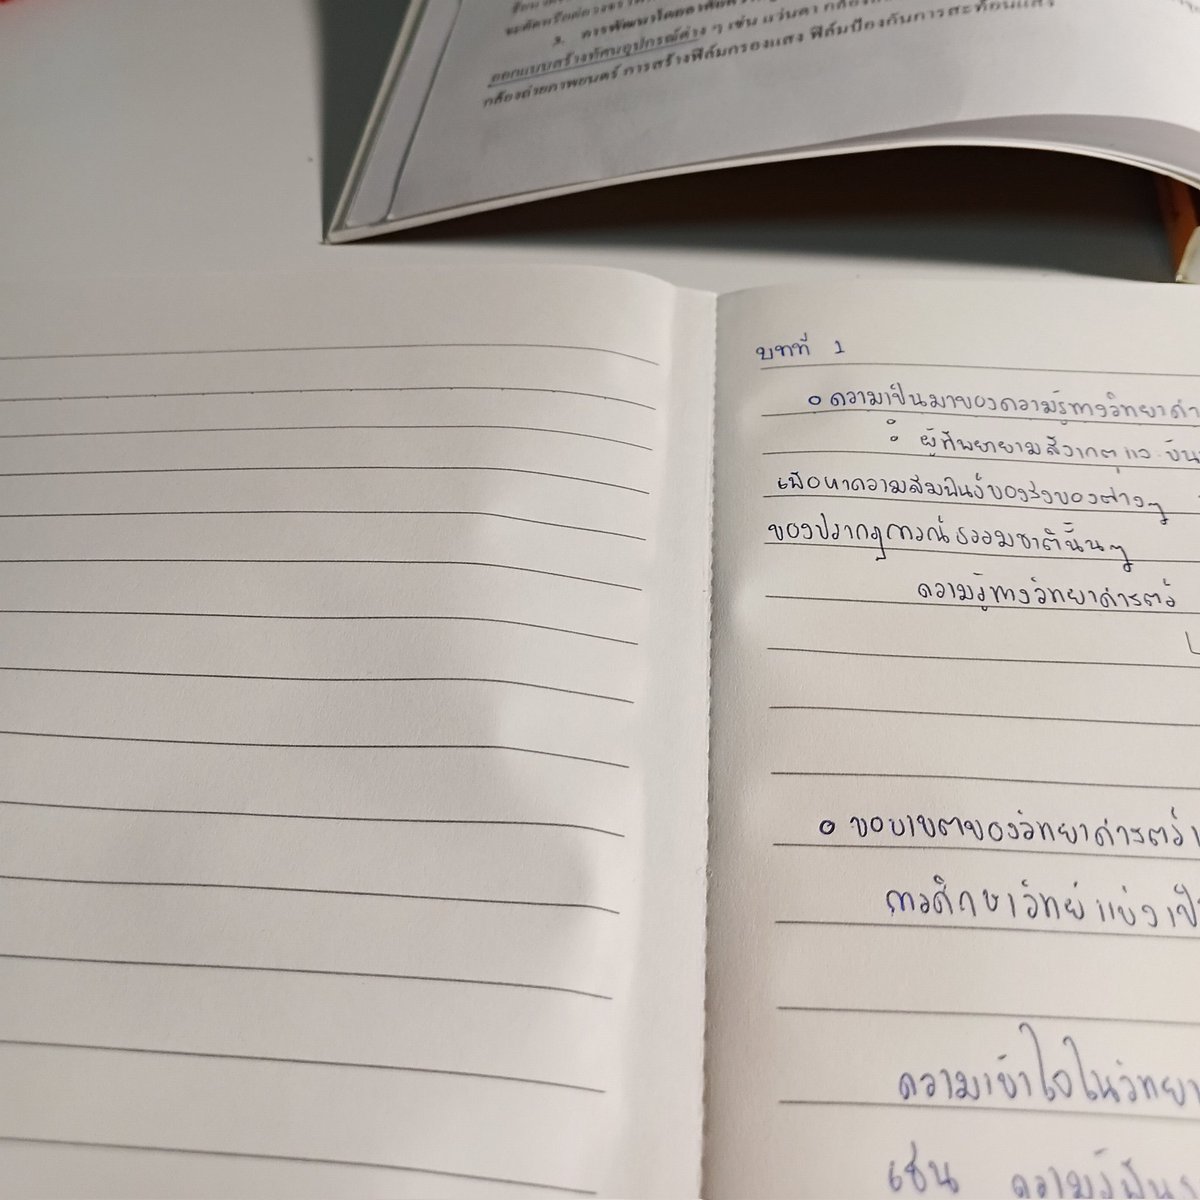 3. การพัฒนาโดยอาศัย
ออกแบบสร้างทัศนอุปกรณ์ต่าง ๆ เช่น แว่นตา กล้อง
กล้องถ่ายภาพยนตร์ การสร้างฟิล์มกรองแสง ฟิล์มป้องกันการสะท้อนแสง
บทที่ 1
ความเป็นมาของความรู้ทางวิทยาศา
ผู้ที่พยายามสังเกต และ บัน
เพื่อหาความสัมพันธ์ของสิ่งของต่างๆ
ของปรากฏการณ์ธรรมชาตินั้นๆ
ความรู้ทางวิทยาศาสตร์
ขอบเขตของวิทยาศาสตร์
การศึกษาวิทย์ แบ่งเป็
ความเข้าใจในวิทยา
เช่น ความรู้